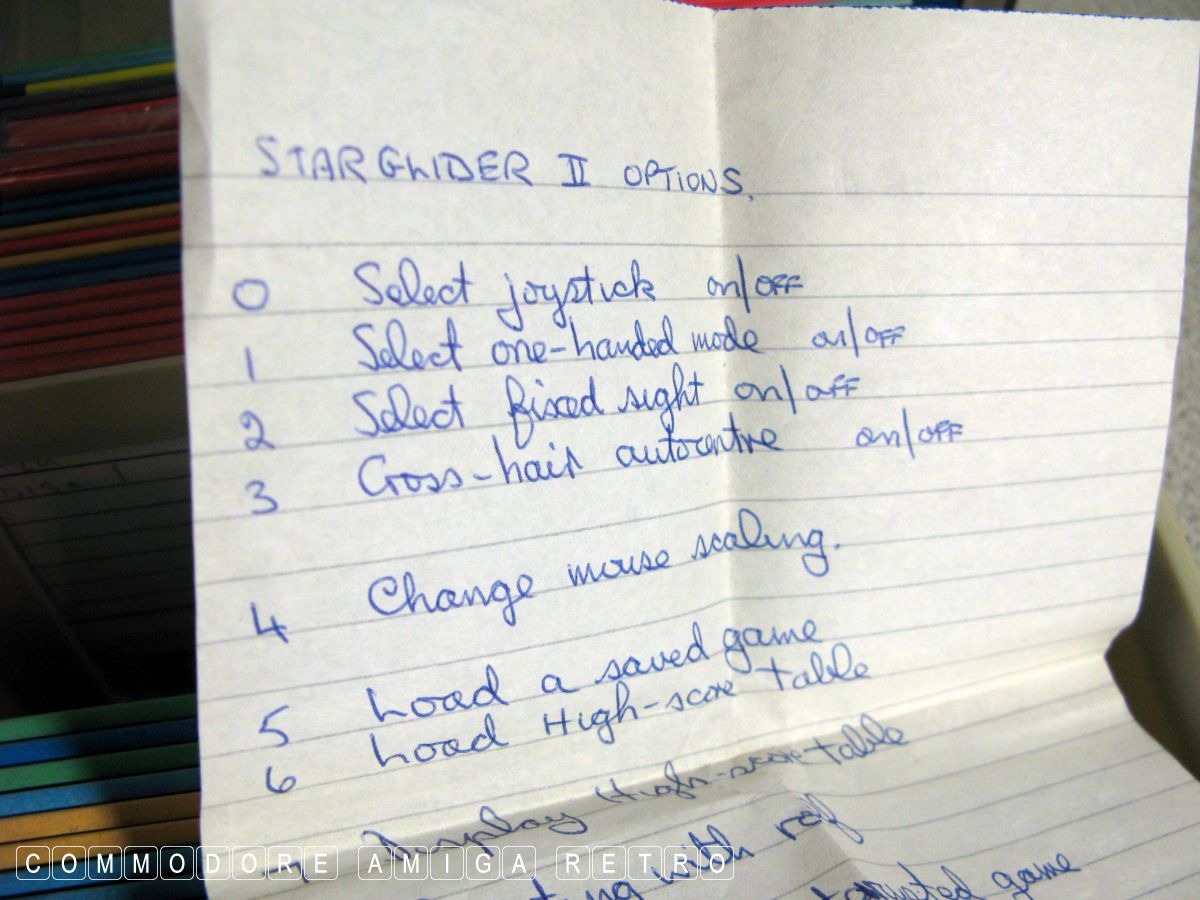 STARGLIDER II OPTIONS.
0 Select joystick on/OFF
1 Select one-handed mode on/OFF
2 Select fixed sight on/OFF
3 Cross-hair autocentre on/OFF
4 Change mouse scaling.
5 Load a saved game
6 Load High-score table
7 Display High-score table
with
game
COMMODORE AMIGA RETRO